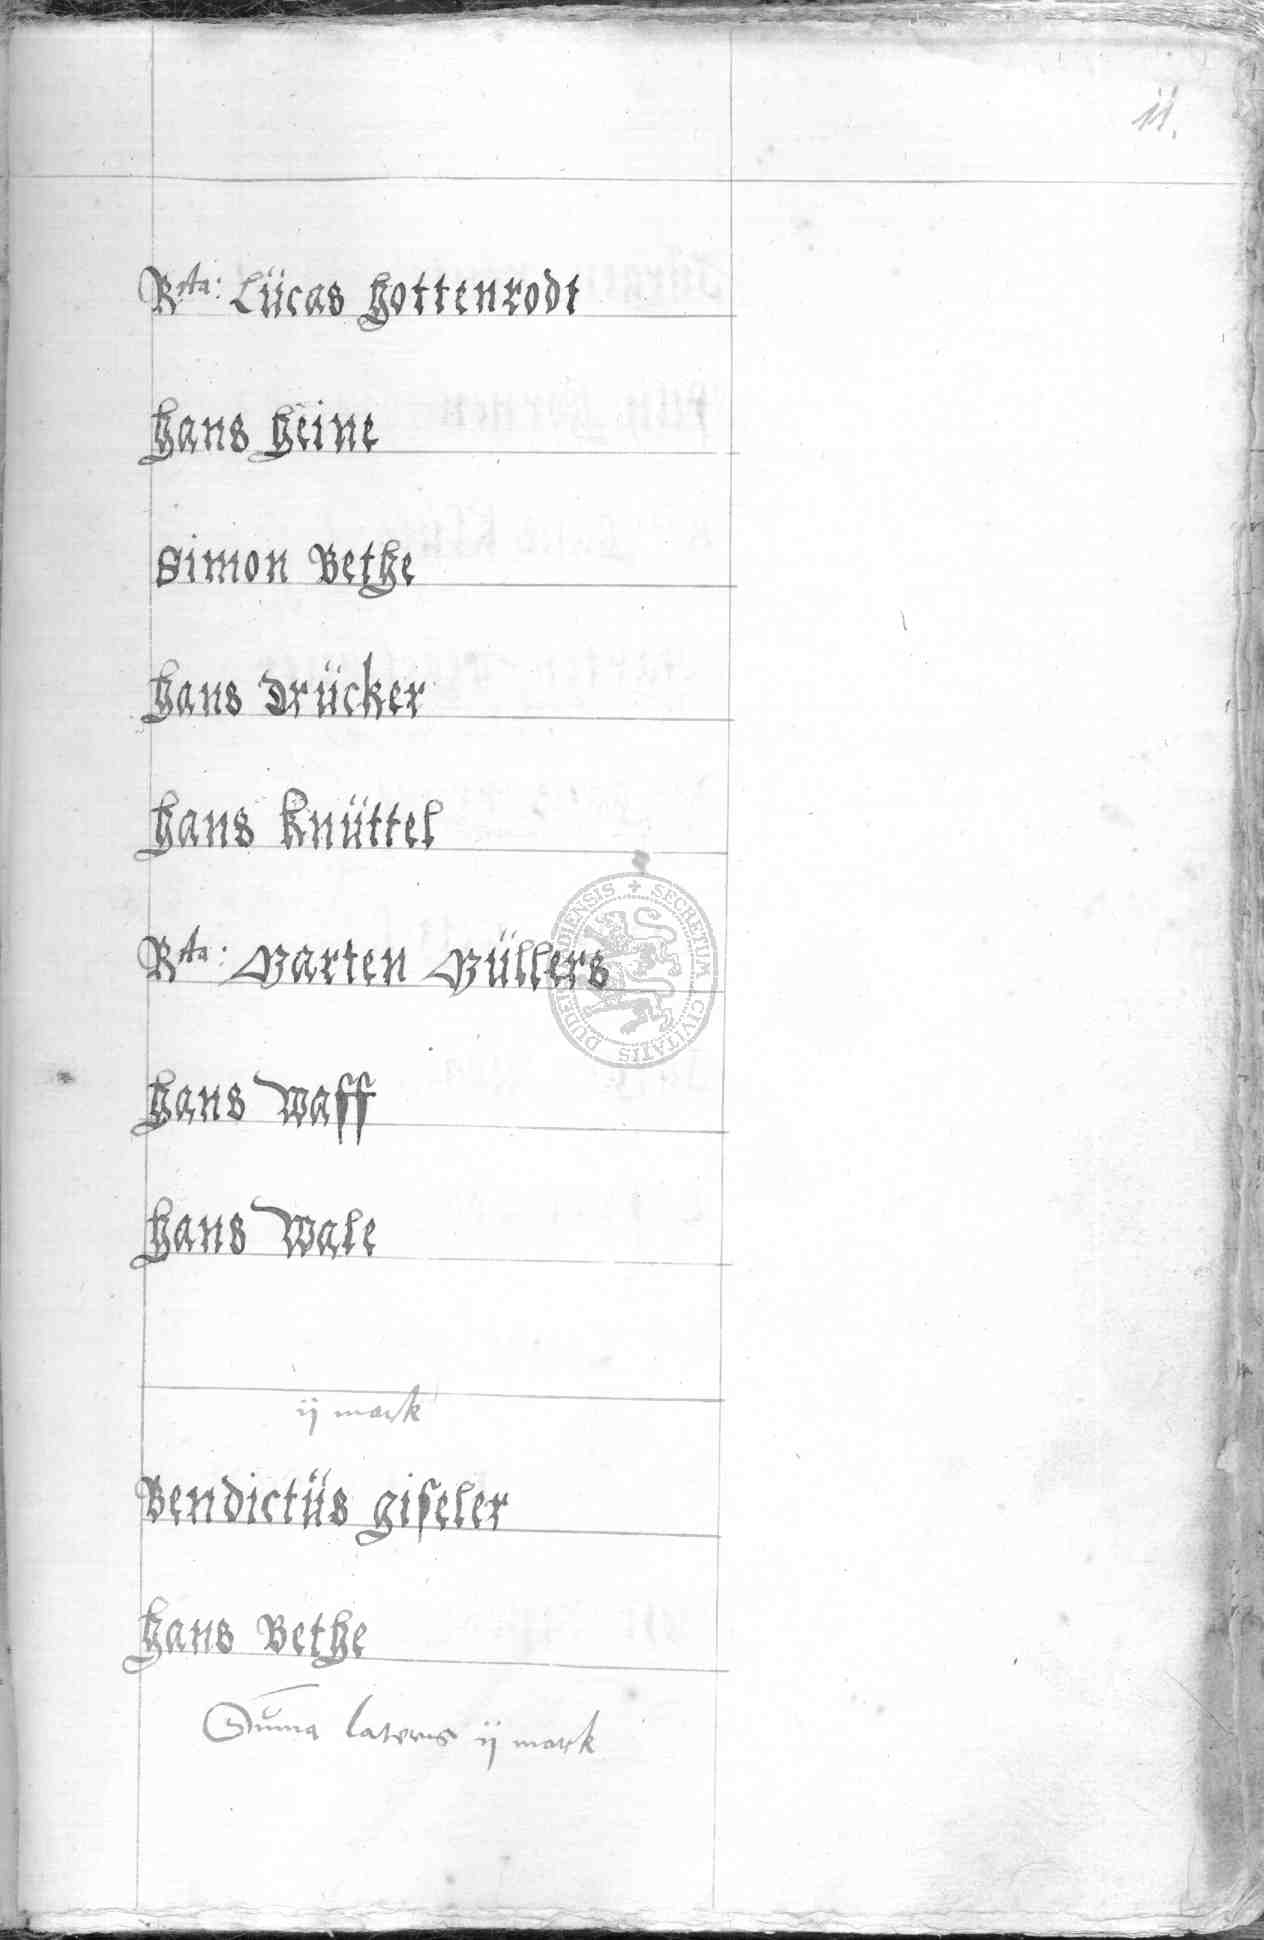 11.
Rta: Lücas Hottenrodt
Hans Heine
Simon Bethe
Hans Drücker
Hans Knüttel
Rta: Barten Büllers
Hans Waff
Hans Wale
ij mark
Bendictüs giseler
Hans Bethe
Suma lateris ij mark
SECRETUM CIVITATIS DUDERSTADIENSIS